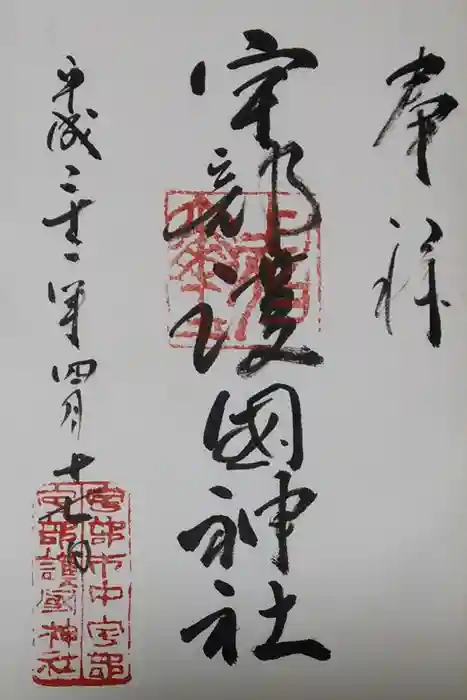 奉拝
宇部護國神社
平成三十一年四月十七日
宇部市中宇部
宇部護国神社